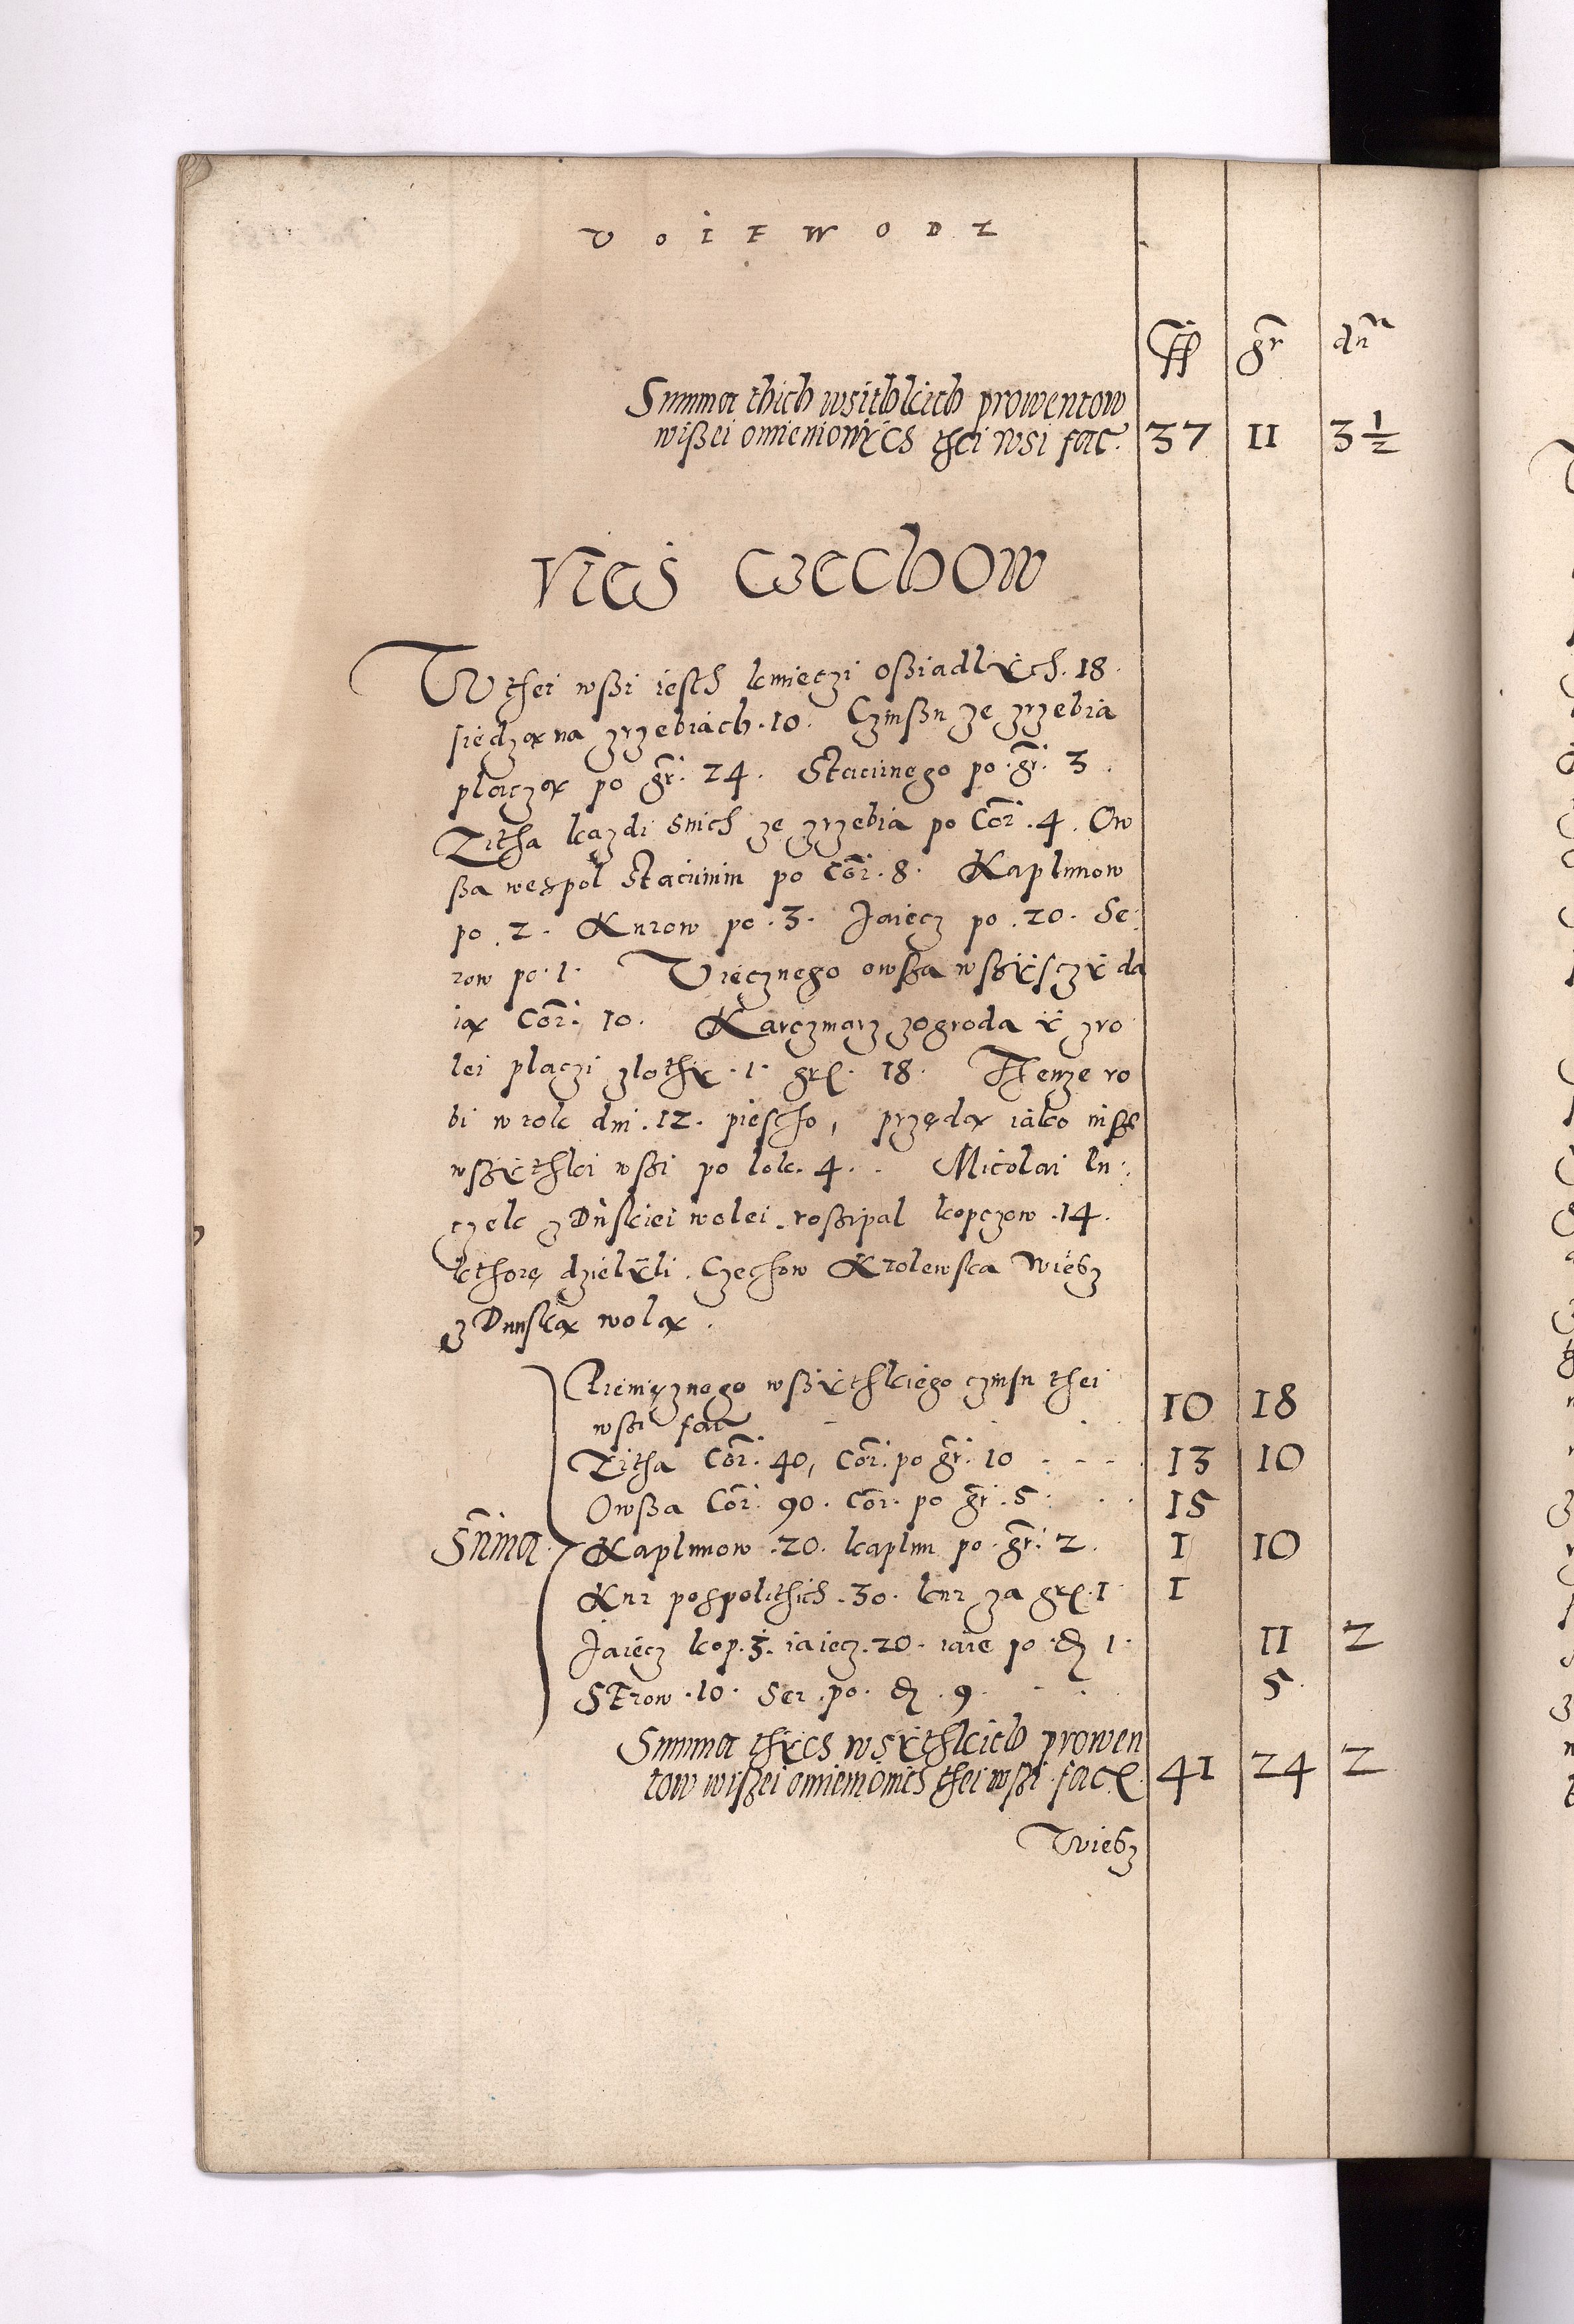 VOIEWODZ
ff gr dn
Summa thich wsithkich prowentow
wißei omienionÿch thei wsi fac. 37 11 3 1/2
Vieś Czechow
W thei wßi iesth kmieczi oßiadlÿch. 18.
siedzą na zrzebiach. 10. Czinßu ze zrzebia
placzą po gr. 24. Stacijnego po gr. 3.
Zitha kazdi snich ze zrzebia po Cor. 4. Ow
ßa wespol Stacijnim po Cor. 8. Kaplunow
po. 2. Kurow po. 3. Jaiecz po. 20. Se
row po. 1. Viecznego owßa wßÿsczÿ da
ią Cor. 10. Karczmarz zogroda ÿ zro
lei placzi zlothÿ. 1. gr. 18. Tenze ro
bi w rok dni. 12. piescho, przędą iako inße
wßÿthki wßi po lok. 4. Micolai Lu
czek z Duńskiei wolei roßipal kopczow. 14.
kthorę dzielÿli. Czechow Krolewska Wiesz
z Dunską wolą.
Pienięznego wßÿthkiego czinsu thei
wßi fac 10 18
Zitha Cor. 40, Cor. po gr. 10 13 10
Owßa Cor. 90. Cor. po gr. 5. 15
Suma. Kaplunow. 20. kaplun po gr. 2. 1 10
Kur pospolithich. 30. kur za gr. 1 1
Jaiecz kop. 3. iaiecz. 20. iaie po d. 1. 11 2
SErow. 10. Ser. po. d. 9. 5.
Summa thÿch wsÿthkich prowen
tow wißei omienionich thei wßi fac. 41 24 2
Wiesz